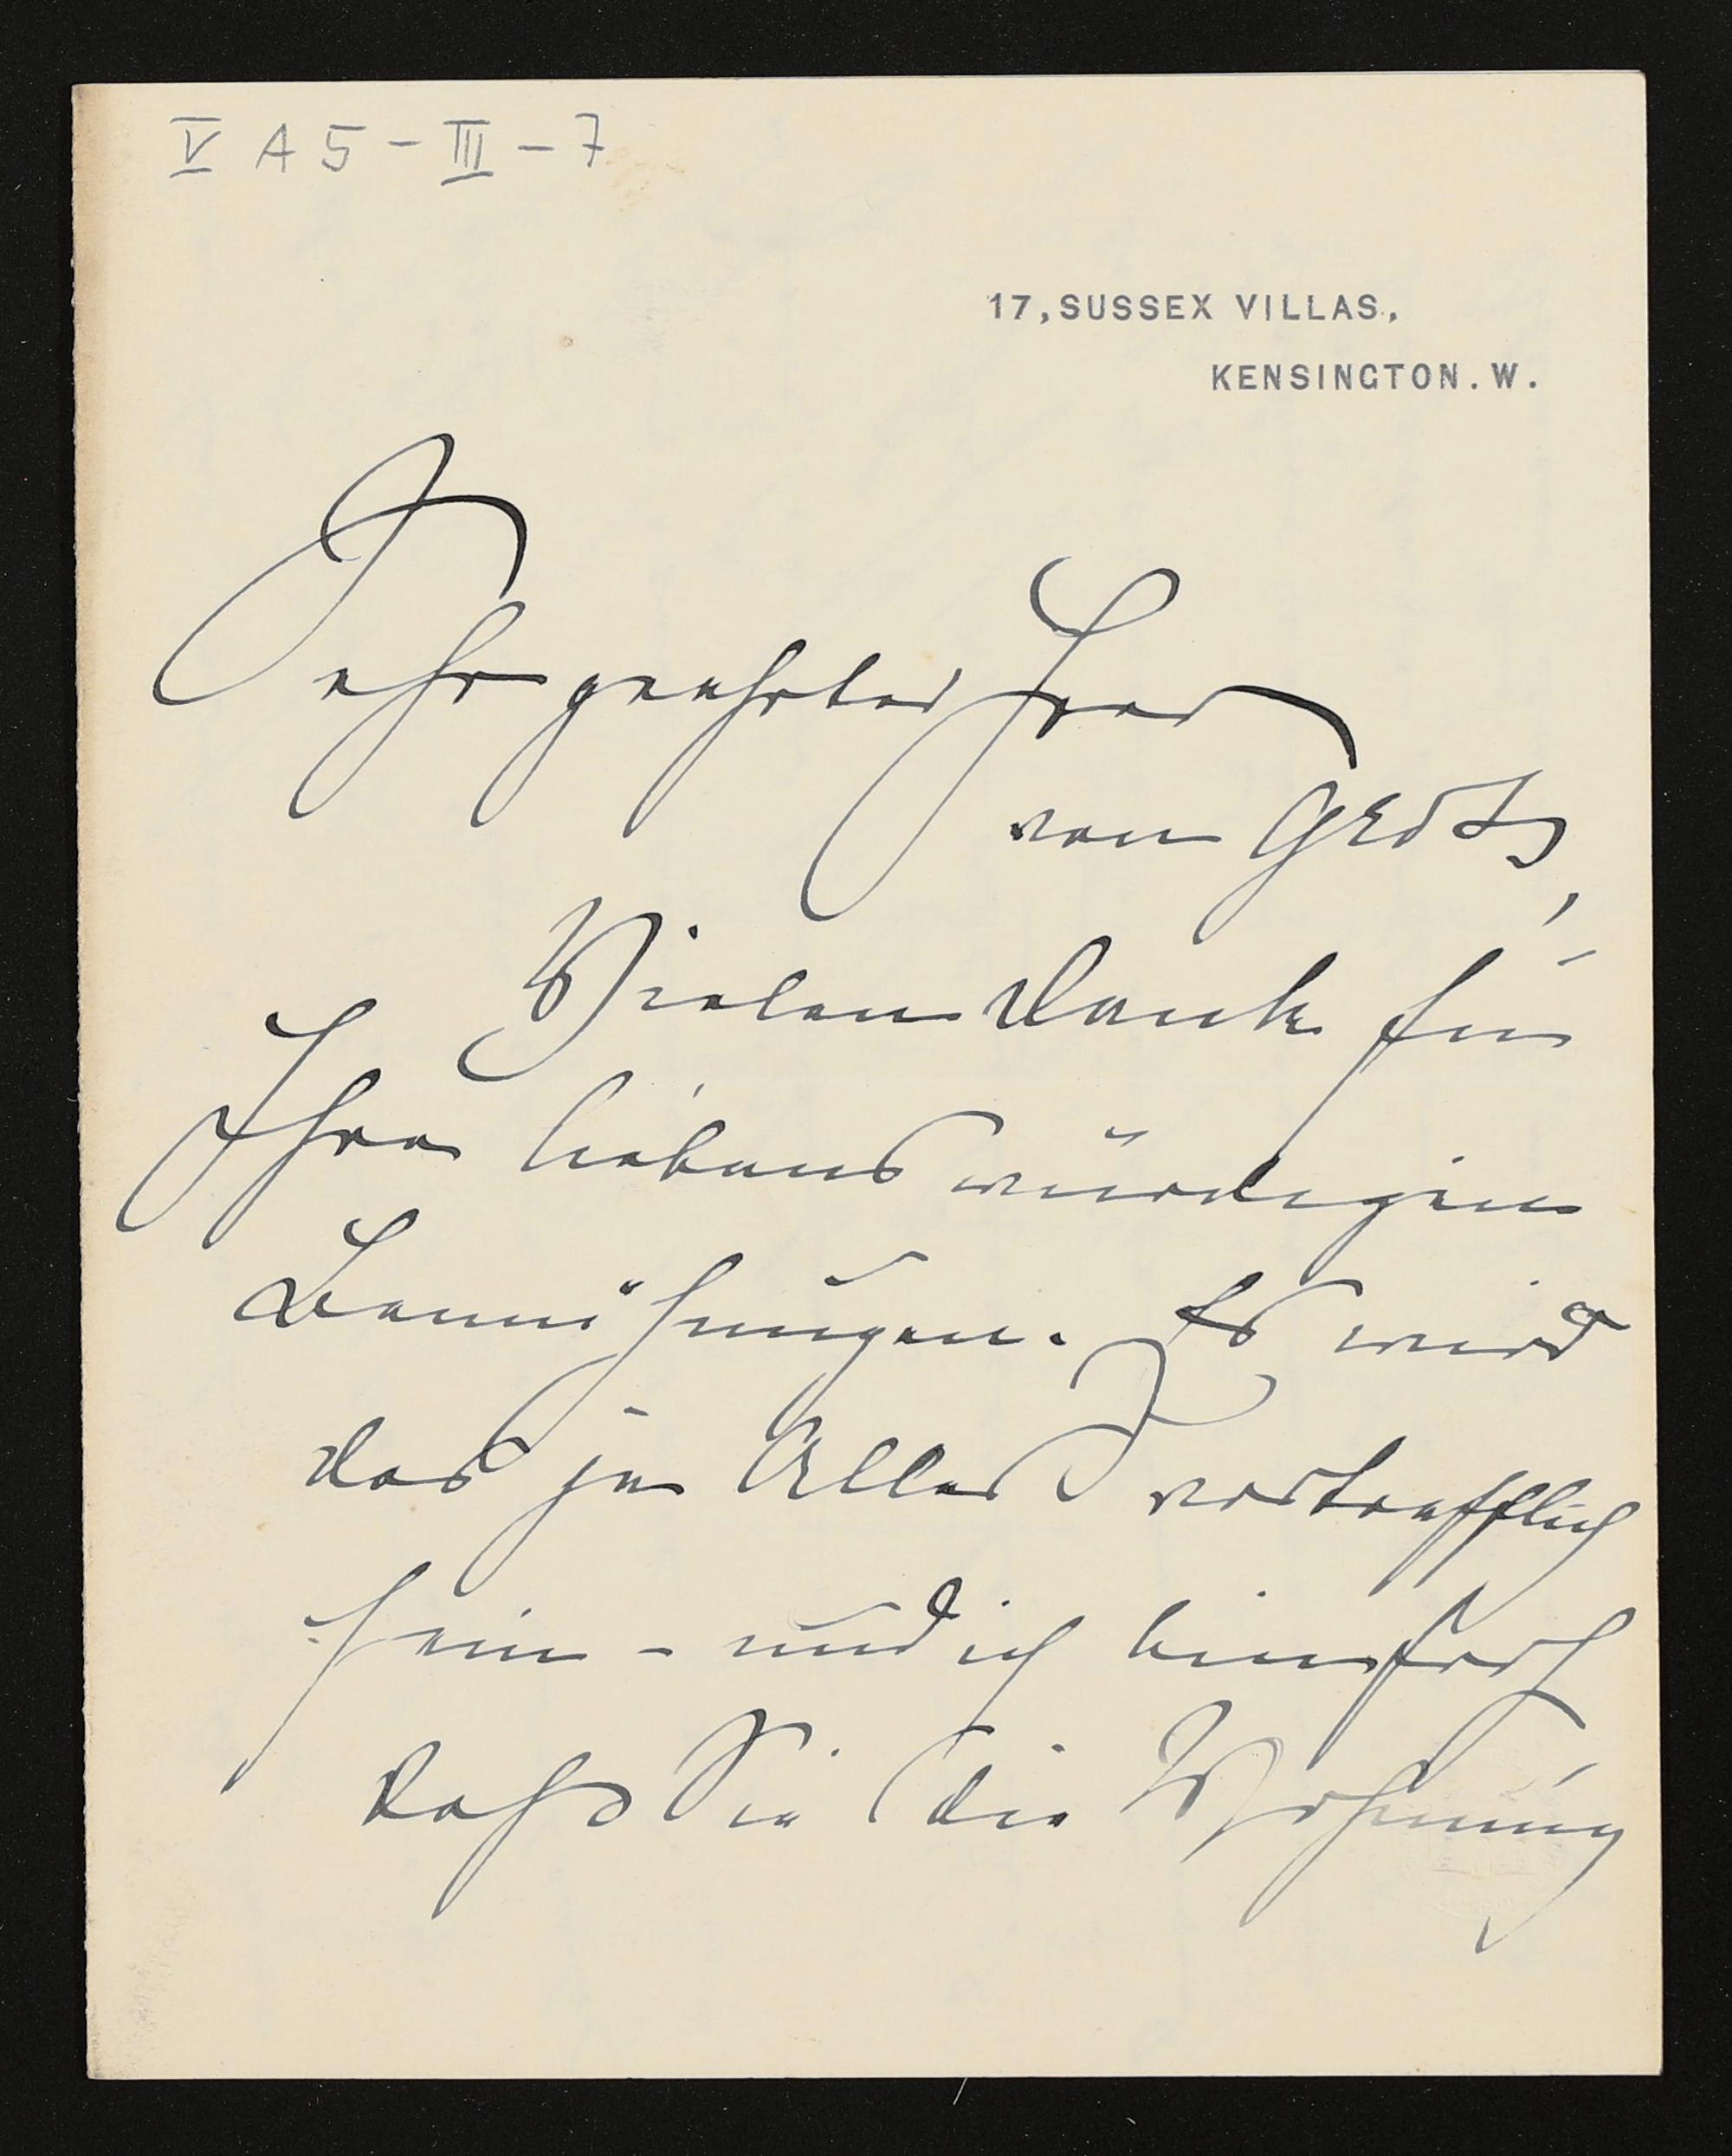 V A 5 - III - 7
17, SUSSEX VILLAS.,
KENSINGTON. W.
Sehr geehrter Herr
von Grote,
Vielen Dank für
Ihre liebenswürdigen
Bemühungen. Es wird
das ja Alles vortrefflich
sein - und ich bin froh
daß Sie die Wohnung